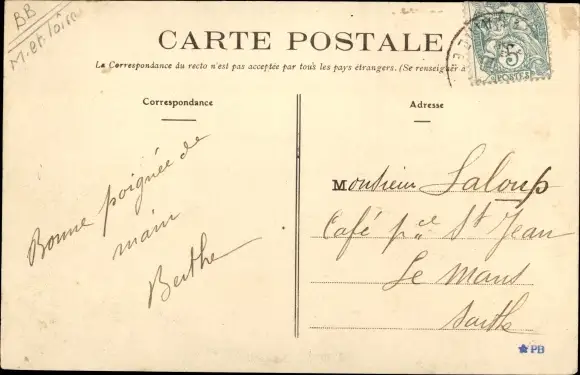 BB
M. et Loire
CARTE POSTALE
La Correspondance du recto n'est pas acceptée par tous les pays étrangers. (Se renseigner à
Correspondance
Bonne poignée de
main
Berthe
Adresse
Monsieur Laloup
Café pce St Jean
Le Mans
Sarthe
5c
POSTES
PB